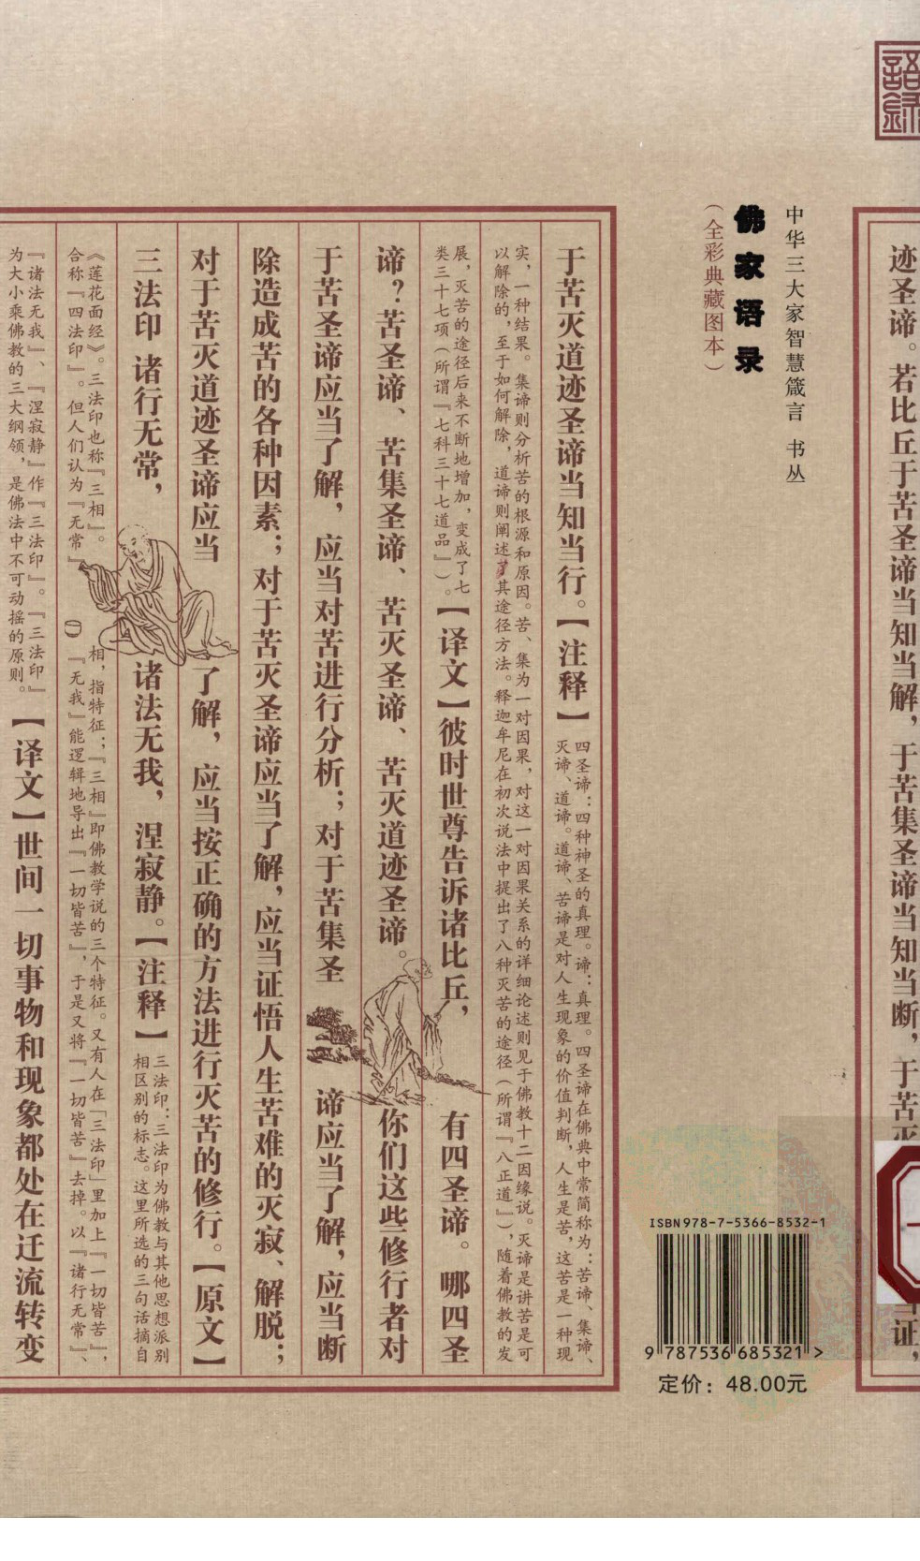 語録
迹圣谛。若比丘于苦圣谛当知当解，于苦集圣谛当知当断，于苦
证，
中华三大家智慧箴言 书丛
佛家语录
（全彩典藏图本）
于苦灭道迹圣谛当知当行。【注释】
四圣谛：四种神圣的真理。谛：真理。四圣谛在佛典中常简称为：苦谛、集谛、
灭谛、道谛。道谛、苦谛是对人生现象的价值判断，人生是苦，这苦是一种现
实，一种结果。集谛则分析苦的根源和原因。苦、集为一对因果，对这一对因果关系的详细论述则见于佛教十二因缘说。灭谛是讲苦是可
以解除的，至于如何解除，道谛则阐述了其途径方法。释迦牟尼在初次说法中提出了八种灭苦的途径（所谓『八正道』），随着佛教的发
展，灭苦的途径后来不断地增加，变成了七
类三十七项（所谓『七科三十七道品』）。
【译文】彼时世尊告诉诸比丘，有四圣谛。哪四圣
谛？苦圣谛、苦集圣谛、苦灭圣谛、苦灭道迹圣谛。你们这些修行者对
于苦圣谛应当了解，应当对苦进行分析；对于苦集圣谛应当了解，应当断
除造成苦的各种因素；对于苦灭圣谛应当了解，应当证悟人生苦难的灭寂、解脱；
对于苦灭道迹圣谛应当了解，应当按正确的方法进行灭苦的修行。【原文】
三法印 诸行无常，诸法无我，涅寂静。【注释】
三法印：三法印为佛教与其他思想派别
相区别的标志。这里所选的三句话摘自
《莲花面经》。三法印也称『三相』。相，指特征；『三相』即佛教学说的三个特征。又有人在『三法印』里加上『一切皆苦』，
合称『四法印』。但人们认为『无常』『无我』能逻辑地导出『一切皆苦』，于是又将『一切皆苦』去掉。以『诸行无常』、
『诸法无我』、『涅寂静』作『三法印』。『三法印』
为大小乘佛教的三大纲领，是佛法中不可动摇的原则。
【译文】世间一切事物和现象都处在迁流转变
ISBN 978-7-5366-8532-1
9 787536 685321 >
定价：48.00元